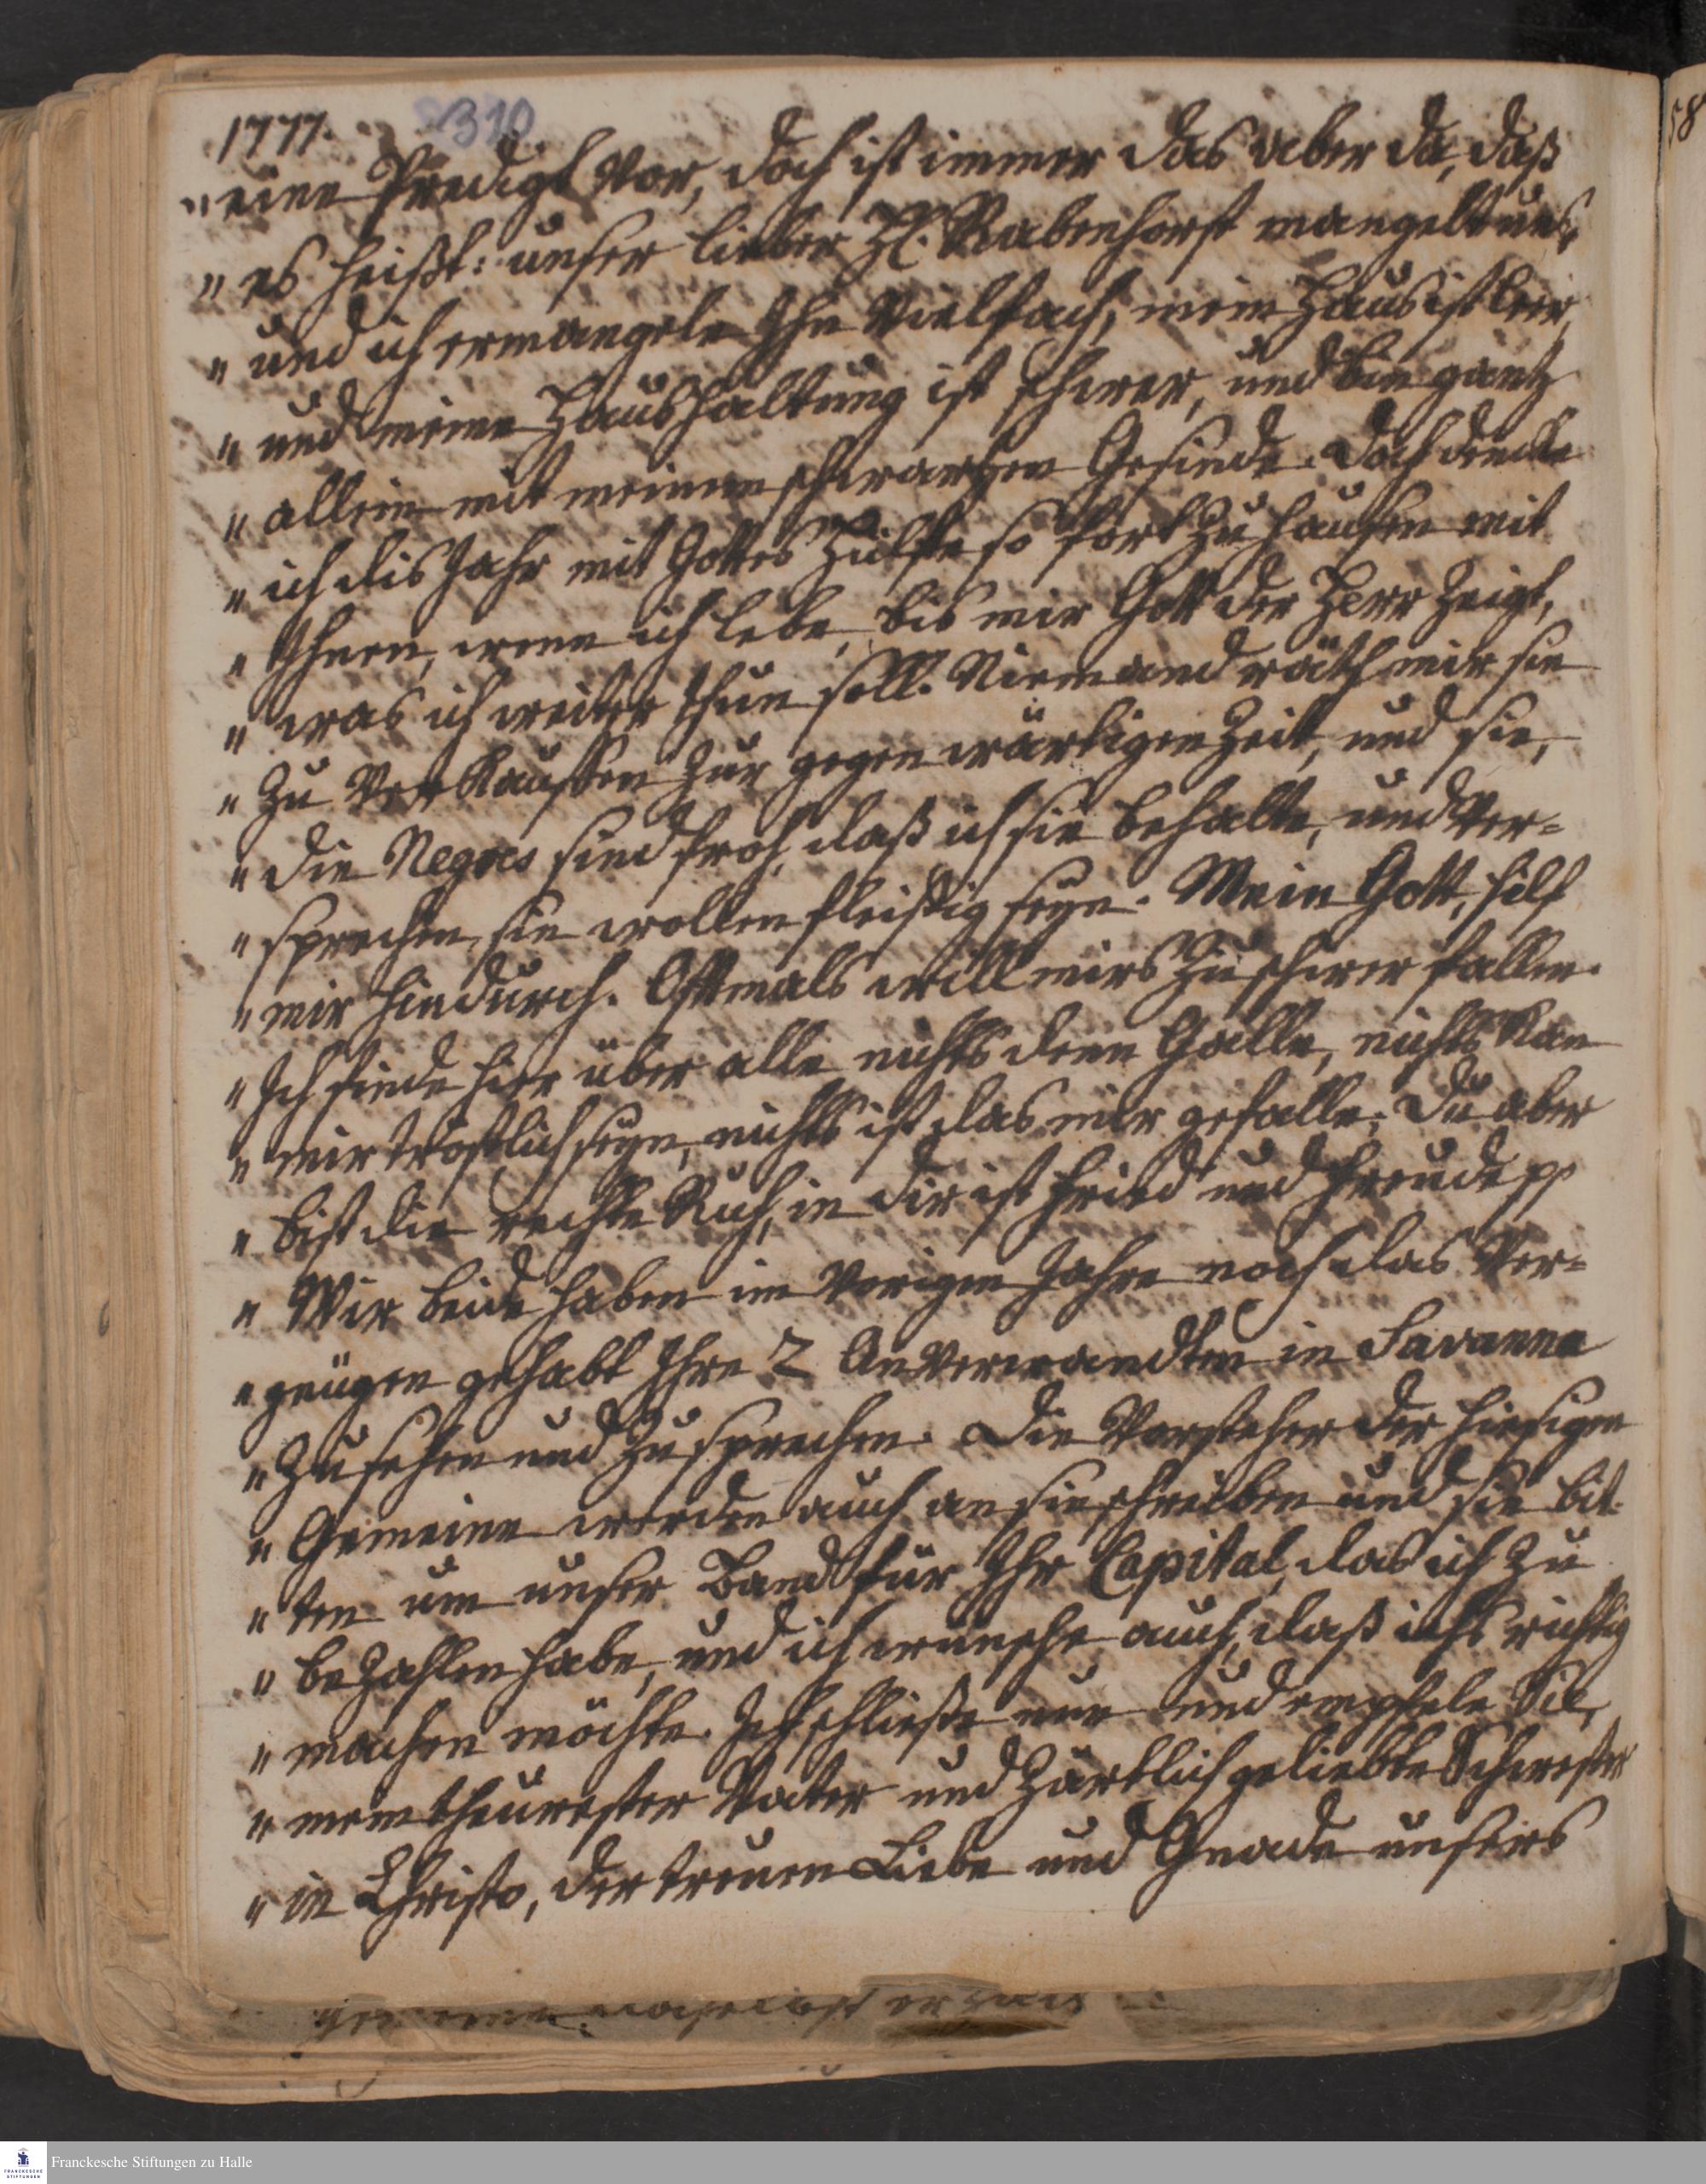 1777. 310
„ eine Predigt vor, doch ist immer das aber da, daß
„ es heißt: unser lieber H. Rabenhorst mangelt uns,
„ und ich ermangele Ihn vielfach, mein Haus ist leer,
„ und meine Haushaltung ist schwer, und bin gantz
„ allein mit meinem schwartzen Gesinde. Doch dencke
„ ich dis Jahr mit Gottes Hülfe so fort zu hausen mit
„ Ihnen, wenn ich lebe, bis mir Gott der Herr zeigt,
„ was ich weiter thun soll. Niemand räth mir sie
„ zu verkauffen zur gegenwärtigen Zeit, und sie,
„ die Negroes sind froh, daß ich sie behalte, und ver-
„ sprechen, sie wollen fleißig seyn. Mein Gott, hilf
„ mir hindurch. Oftmals will mirs zu schwer fallen.
„ Ich finde hier über alle nichts denn Galle, nichts kan
„ mir tröstlich seyn, nichts ist das mir gefalle. Du aber
„ bist die rechte Ruh, in dir ist Fried und Freude pp
„ Wir beide haben im vorigen Jahre noch das Ver-
„ gnügen gehabt Ihre 2 Anverwandten in Savanna
„ zu sehen und zu sprechen. Die Vorsteher der hiesigen
„ Gemeine werden auch an sie schreiben und sie bit-
„ ten um unser Band für Ihr Capital, das ich zu
„ bezahlen habe, und ich wünsche auch, daß ichs richtig
„ machen möchte. Ich schließe nun und empfele Sie,
„ mein theurester Vater und zärtlich geliebte Schwester
„ in Christo, der treuen Liebe und Gnade unsers
58
Franckesche Stiftungen zu Halle